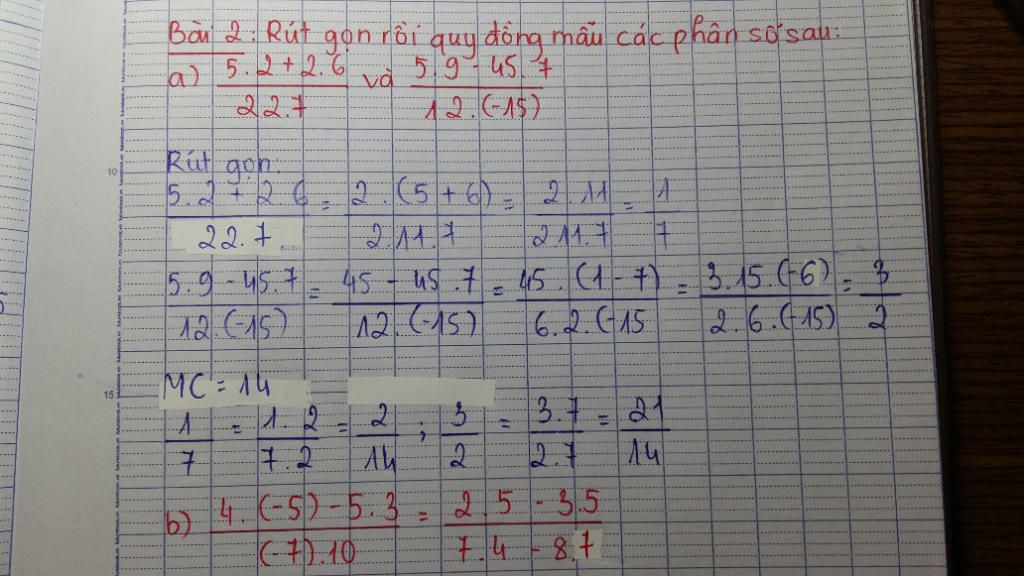 Bài 2: Rút gọn rồi quy đồng mẫu các phân số sau:
a) (5.2+2.6)/(22.7) và (5.9-45.7)/(12.(-15))
Rút gọn.
(5.2+2 6)/(22.7) = (2.(5+6))/(2.11.7) = (2.11)/(2 11.7) = 1/7
(5.9-45.7)/(12.(-15)) = (45-45.7)/(12.(-15)) = (45.(1-7))/(6.2.(-15) = (3.15.(-6))/(2.6.(-15)) = 3/2
MC = 14
1/7 = (1.2)/(7.2) = 2/14 ; 3/2 = (3.7)/(2.7) = 21/14
b) (4.(-5)-5.3)/((-7).10) = (2.5-3.5)/(7.4-8.7)
10
15